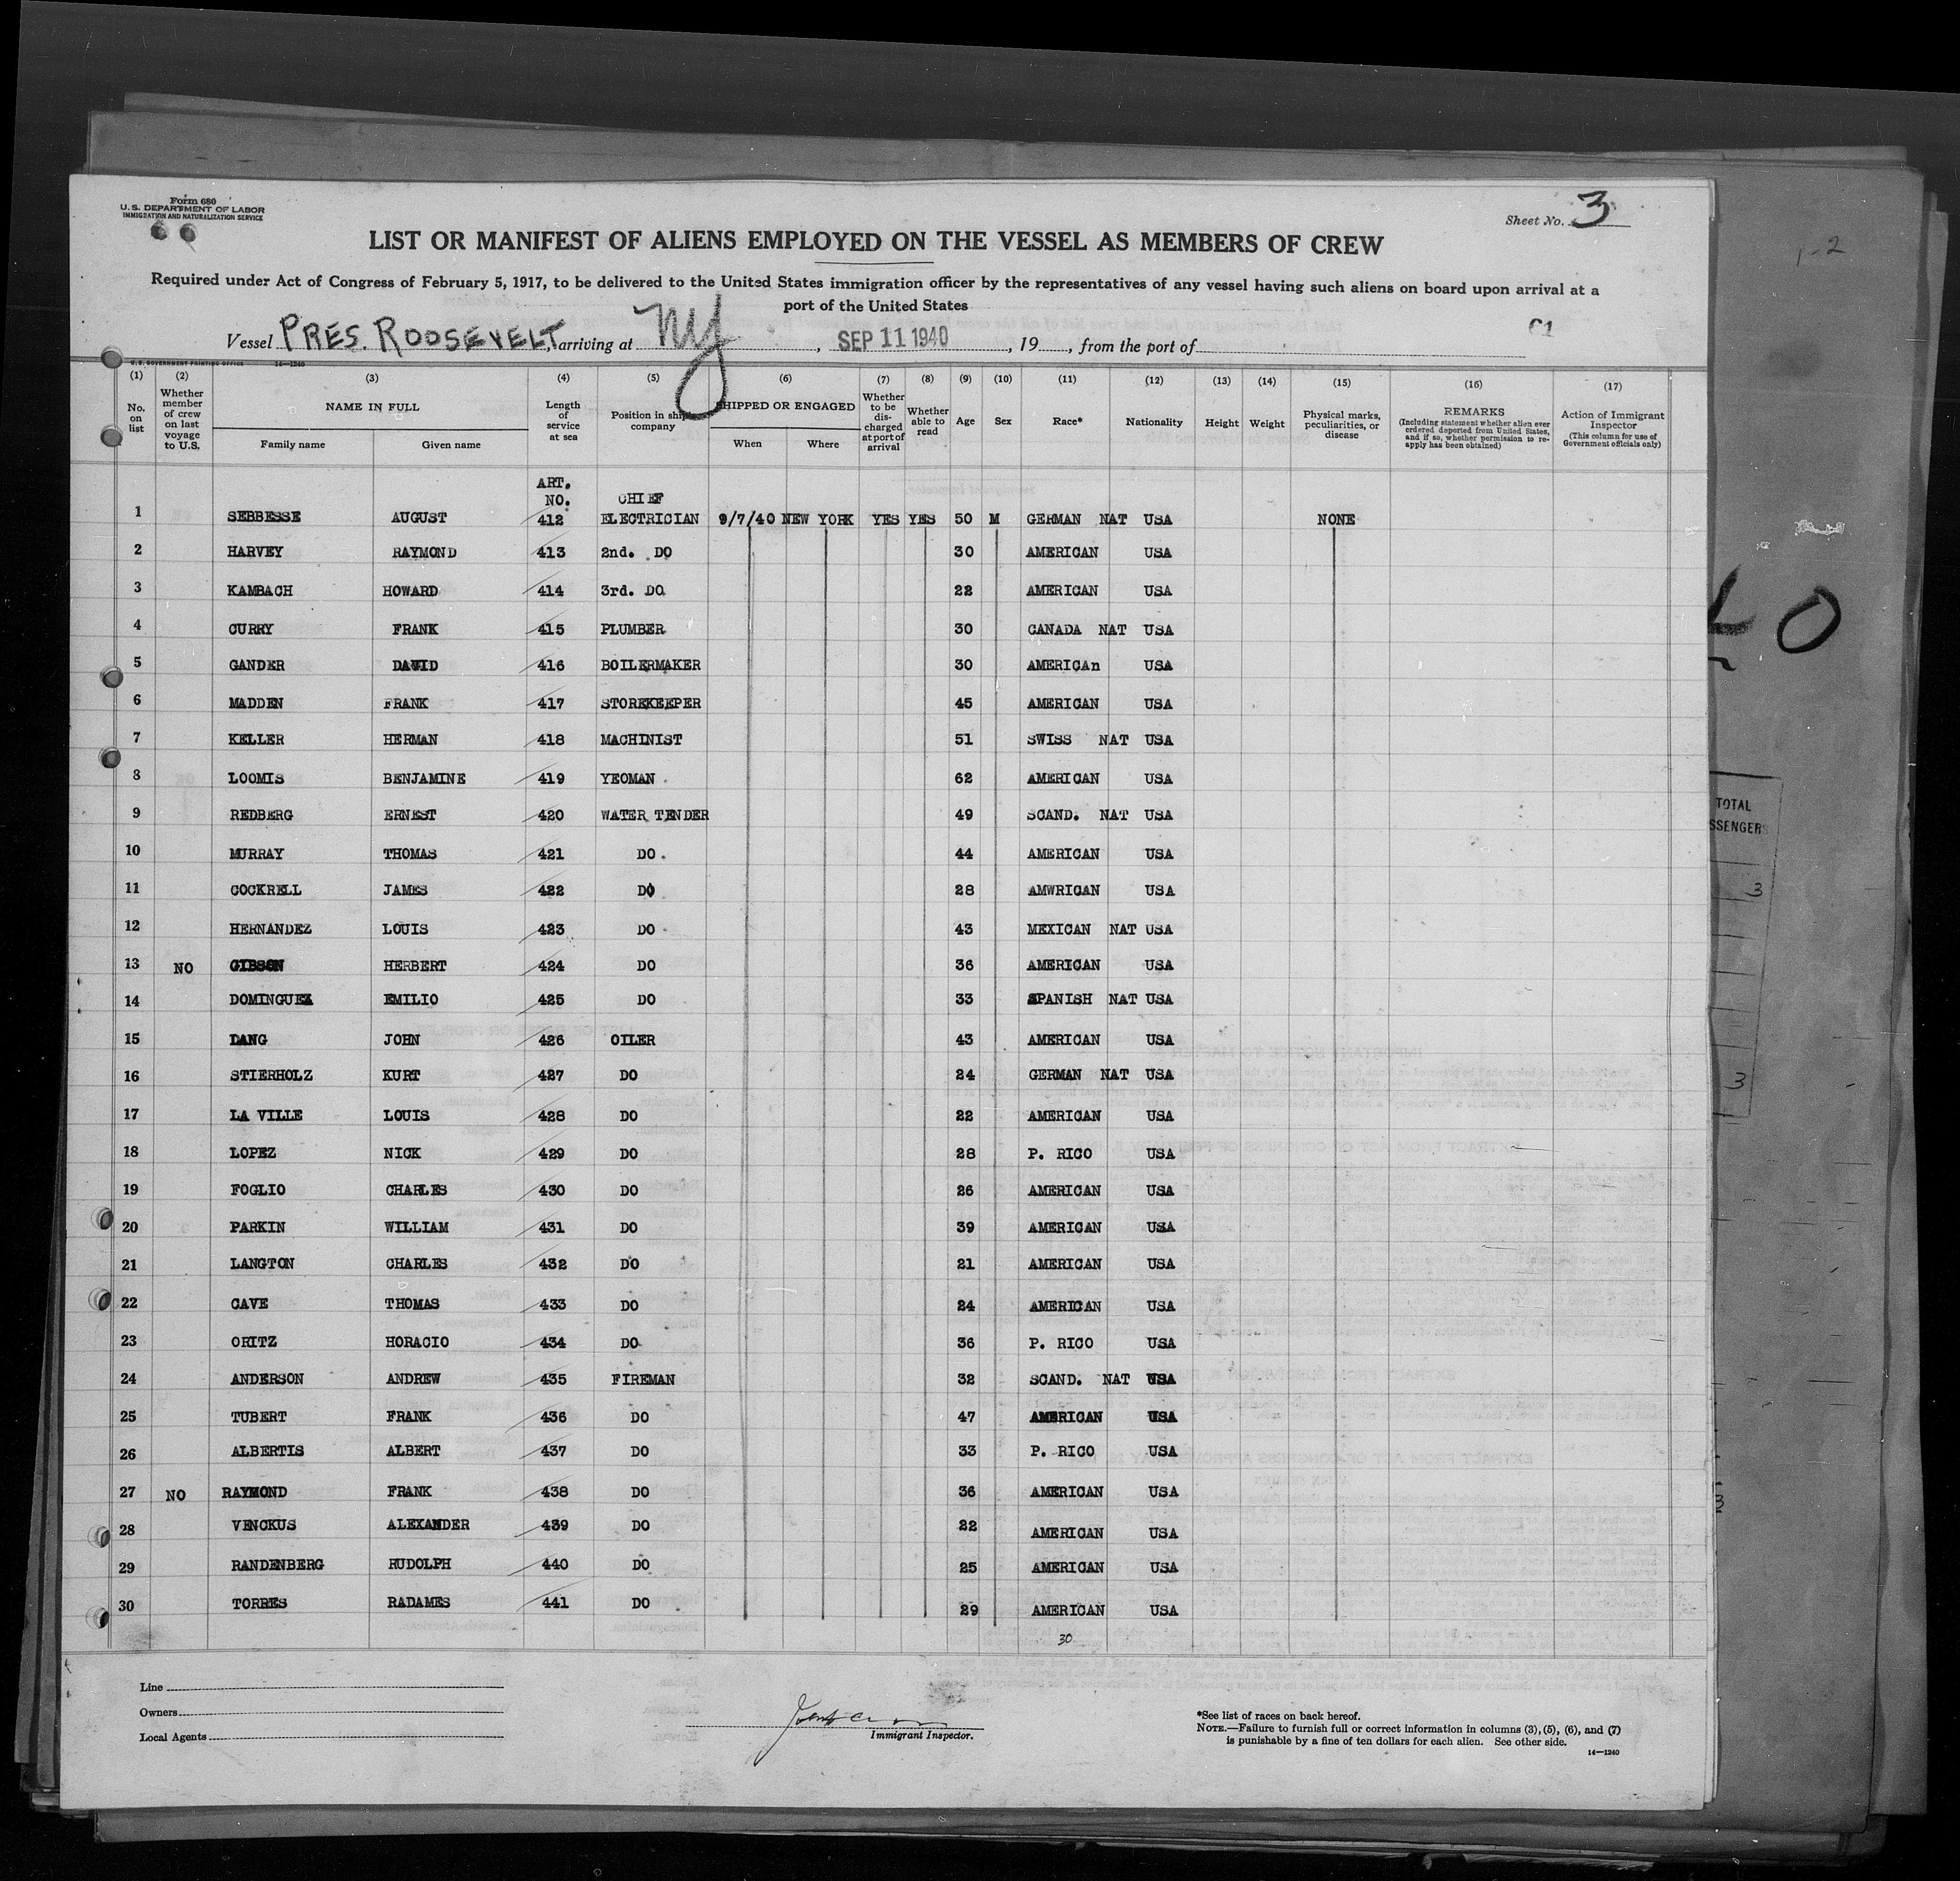 Form 680
U. S. DEPARTMENT OF LABOR
IMMIGRATION AND NATURALIZATION SERVICE
Sheet No. 3
1-2
LIST OR MANIFEST OF ALIENS EMPLOYED ON THE VESSEL AS MEMBERS OF CREW
Required under Act of Congress of February 5, 1917, to be delivered to the United States immigration officer by the representatives of any vessel having such aliens on board upon arrival at a
port of the United States
Vessel PRES. ROOSEVELT, arriving at NY, SEP 11 1940, 19, from the port of
U. S. GOVERNMENT PRINTING OFFICE 14-1240
(1) (2) (3) (4) (5) (6) (7) (8) (9) (10) (11) (12) (13) (14) (15) (16) (17)
No. on list
Whether member of crew on last voyage to U.S.
NAME IN FULL
Family name Given name
Length of service at sea
Position in ship's company
SHIPPED OR ENGAGED
When Where
Whether to be discharged at port of arrival
Whether able to read
Age Sex Race* Nationality Height Weight
Physical marks, peculiarities, or disease
REMARKS
(Including statement whether alien ever ordered deported from United States, and if so, whether permission to reapply has been obtained)
Action of Immigrant Inspector
(This column for use of Government officials only)
ART.
NO. CHIEF
1 SEBBESSE AUGUST 412 ELECTRICIAN 9/7/40 NEW YORK YES YES 50 M GERMAN NAT USA NONE
2 HARVEY RAYMOND 413 2nd. DO 30 AMERICAN USA
3 KAMBACH HOWARD 414 3rd. DO 22 AMERICAN USA
4 CURRY FRANK 415 PLUMBER 30 CANADA NAT USA
5 GANDER DAVID 416 BOILERMAKER 30 AMERICAn USA
6 MADDEN FRANK 417 STOREKEEPER 45 AMERICAN USA
7 KELLER HERMAN 418 MACHINIST 51 SWISS NAT USA
8 LOOMIS BENJAMINE 419 YEOMAN 62 AMERICAN USA
9 REDBERG ERNEST 420 WATER TENDER 49 SCAND. NAT USA
10 MURRAY THOMAS 421 DO. 44 AMERICAN USA
11 COCKRELL JAMES 422 DO 28 AMWRICAN USA
12 HERNANDEZ LOUIS 423 DO 43 MEXICAN NAT USA
13 NO GIBSON HERBERT 424 DO 36 AMERICAN USA
14 DOMINGUEZ EMILIO 425 DO 33 SPANISH NAT USA
15 DANG JOHN 426 OILER 43 AMERICAN USA
16 STIERHOLZ KURT 427 DO 24 GERMAN NAT USA
17 LA VILLE LOUIS 428 DO 22 AMERICAN USA
18 LOPEZ NICK 429 DO 28 P. RICO USA
19 FOGLIO CHARLES 430 DO 26 AMERICAN USA
20 PARKIN WILLIAM 431 DO 39 AMERICAN USA
21 LANGTON CHARLES 432 DO 21 AMERICAN USA
22 CAVE THOMAS 433 DO 24 AMERICAN USA
23 ORITZ HORACIO 434 DO 36 P. RICO USA
24 ANDERSON ANDREW 435 FIREMAN 32 SCAND. NAT USA
25 TUBERT FRANK 436 DO 47 AMERICAN USA
26 ALBERTIS ALBERT 437 DO 33 P. RICO USA
27 NO RAYMOND FRANK 438 DO 36 AMERICAN USA
28 VENCKUS ALEXANDER 439 DO 22 AMERICAN USA
29 RANDENBERG RUDOLPH 440 DO 25 AMERICAN USA
30 TORRES RADAMES 441 DO 29 AMERICAN USA
30
Line
Owners
Local Agents
Immigrant Inspector.
*See list of races on back hereof.
NOTE.—Failure to furnish full or correct information in columns (3), (5), (6), and (7)
is punishable by a fine of ten dollars for each alien. See other side.
14-1240
TOTAL
SSENGERS
3
3